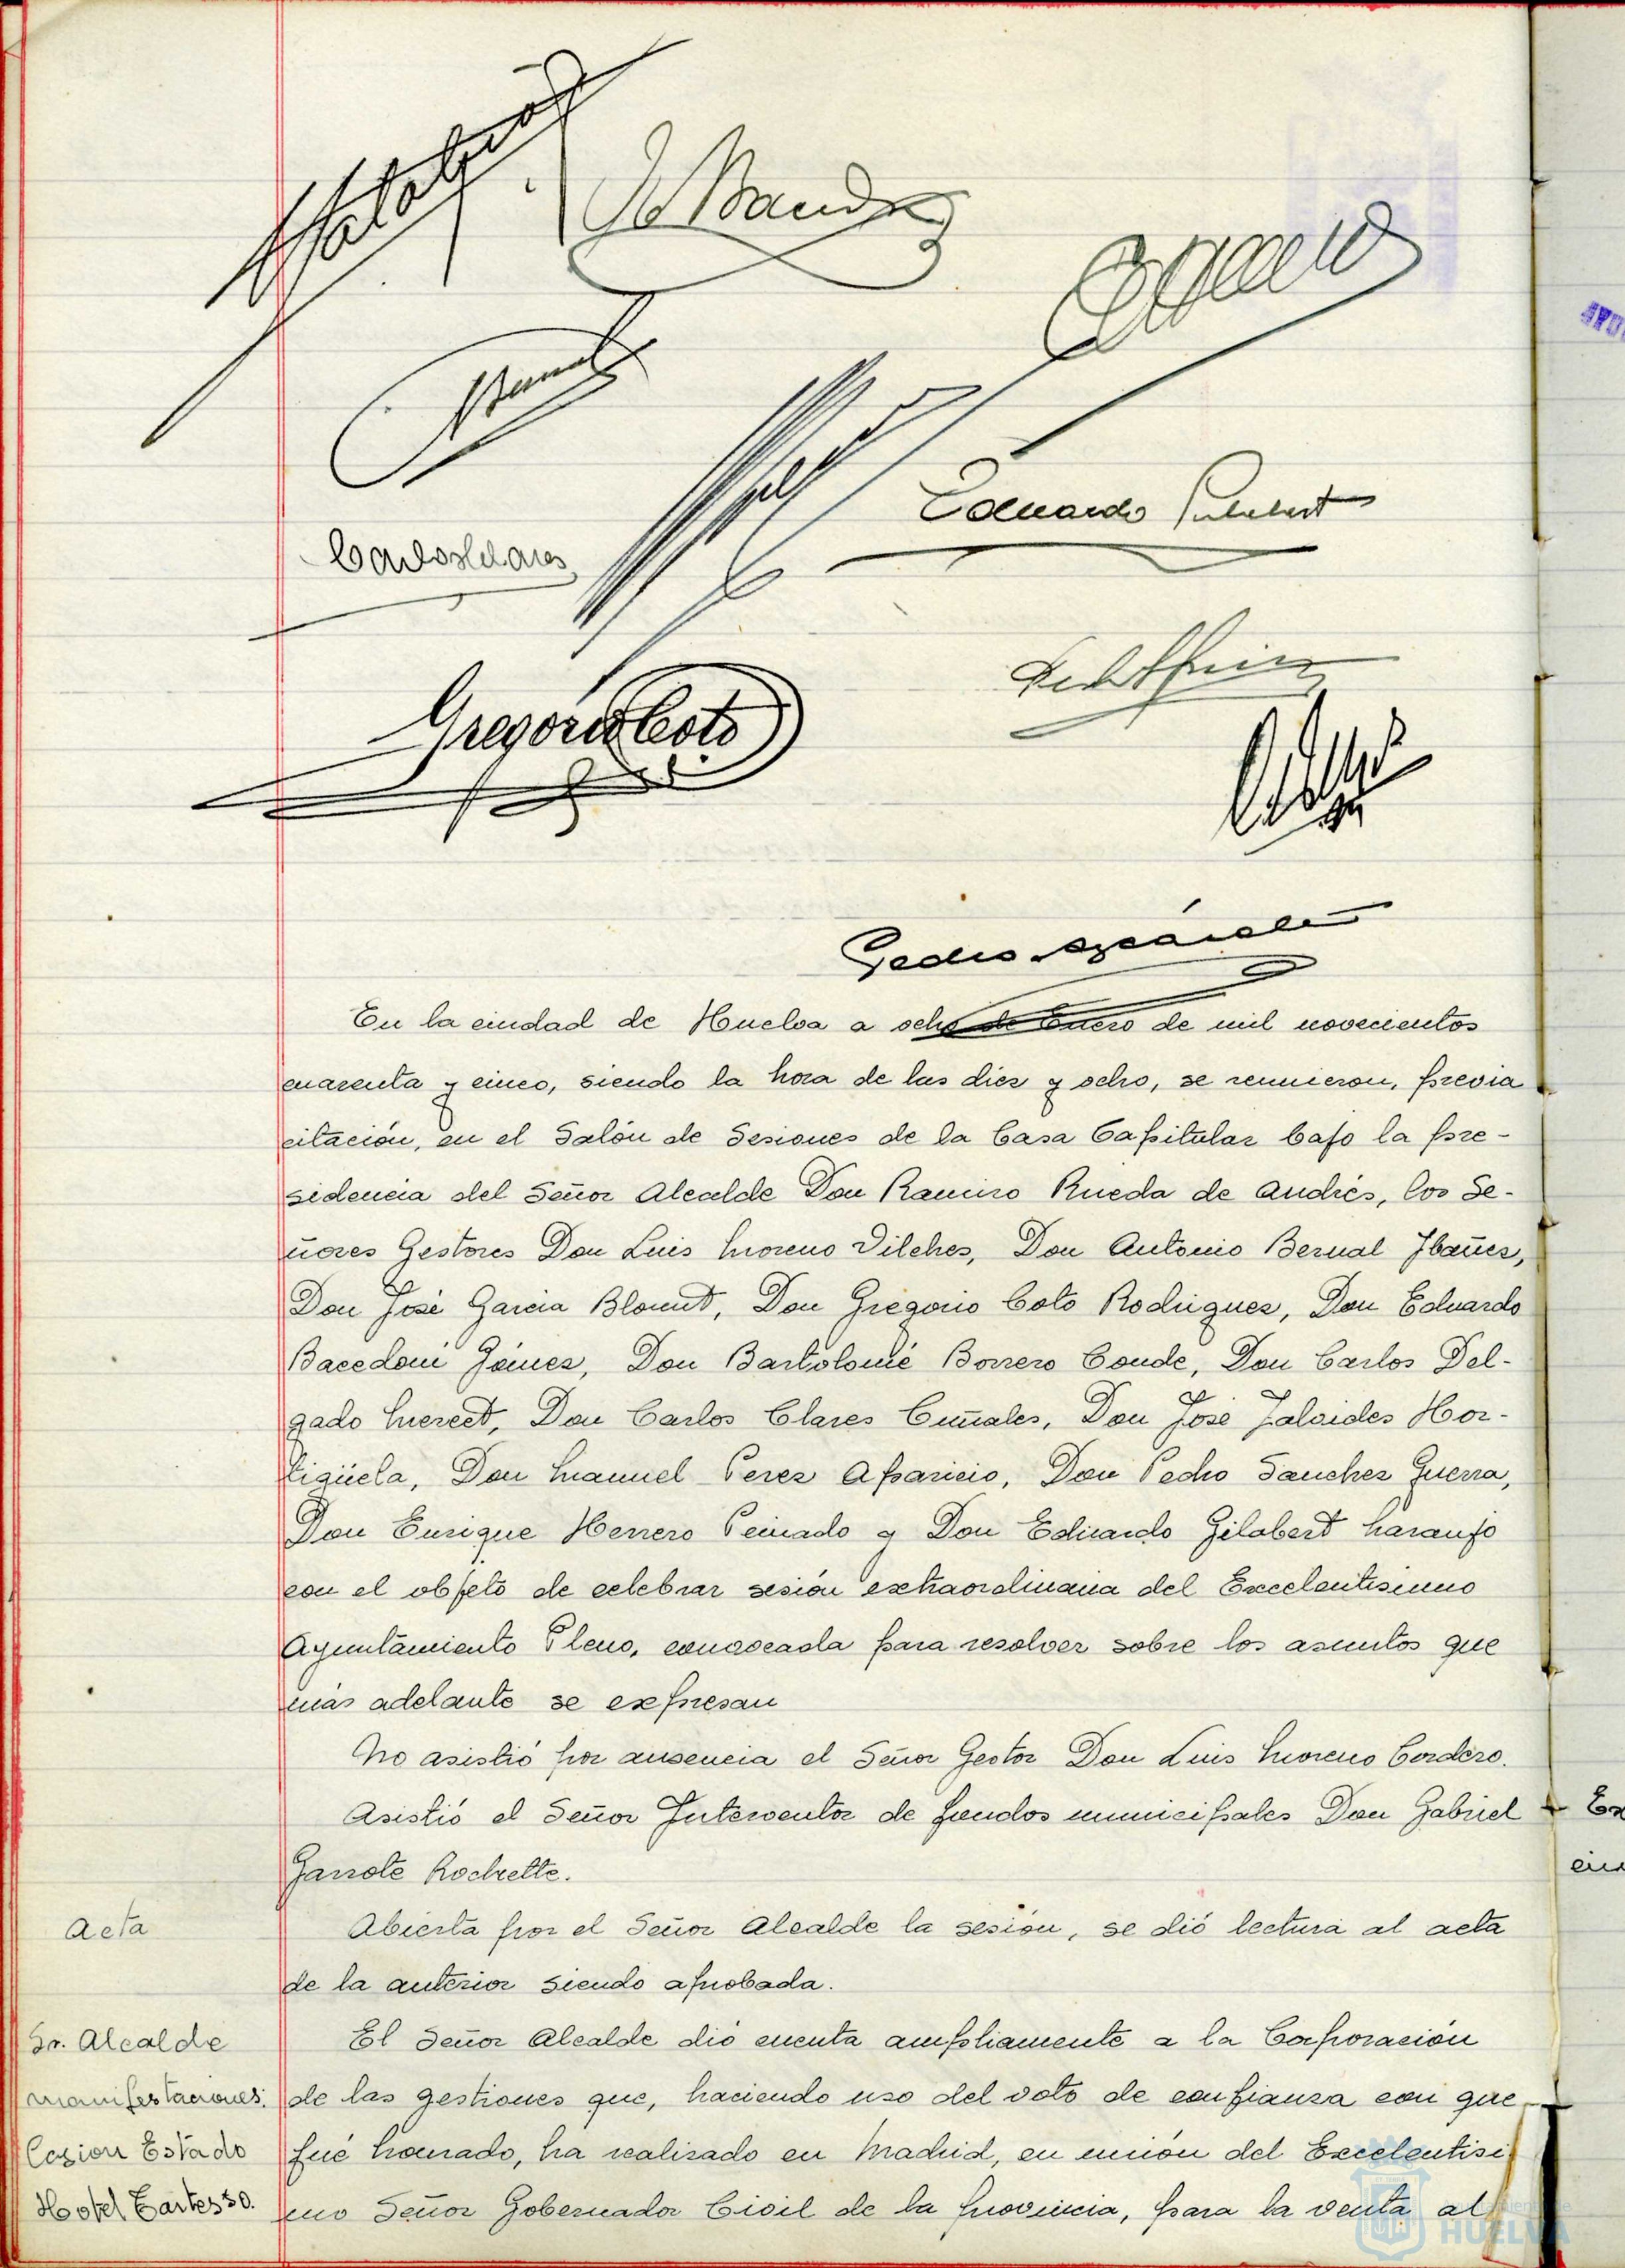 Eduardo Gilabert
Carlos Clares
Gregorio Coto
En la ciudad de Huelva a ocho de Enero de mil novecientos
cuarenta y cinco, siendo la hora de las diez y ocho, se reunieron, previa
citación, en el Salón de Sesiones de la Casa Capitular bajo la pre-
sidencia del Señor Alcalde Don Ramiro Rueda de Andrés, los Se-
ñores Gestores Don Luis Moreno Vilches, Don Antonio Bernal Ibañez,
Don José Garcia Blount, Don Gregorio Coto Rodriguez, Don Eduardo
Don Bartolomé Borrero Conde, Don Carlos Del-
gado Don Carlos Clares Don José Hor-
tigüela, Don Manuel Perez Aparicio, Don Pedro Sanchez Guerra,
Don Enrique Herrero Peinado y Don Eduardo Gilabert Naranjo
con el objeto de celebrar sesión extraordinaria del Excelentisimo
Ayuntamiento Pleno, convocada para resolver sobre los asuntos que
más adelante se expresan
No asistió por ausencia el Señor Gestor Don Luis Moreno Cordero.
Asistió el Señor Interventor de fondos municipales Don Gabriel
Garrote Rochette.
Acta
Abierta por el Señor Alcalde la sesión, se dió lectura al acta
de la anterior siendo aprobada.
Sr. Alcalde
manifestaciones.
Cesion Estado
Hotel Tartesso.
El Señor Alcalde dió cuenta ampliamente a la Corporación
de las gestiones que, haciendo uso del voto de confianza con que
fué honrado, ha realizado en Madrid, en unión del Excelentisi
mo Señor Gobernador Civil de la provincia, para la venta al
HUELVA